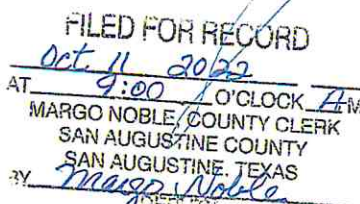 FILED FOR RECORD
Oct. 11 2022
AT 9:00 O'CLOCK A M
MARGO NOBLE, COUNTY CLERK
SAN AUGUSTINE COUNTY
SAN AUGUSTINE, TEXAS
BY Margo Noble
DEPUTY